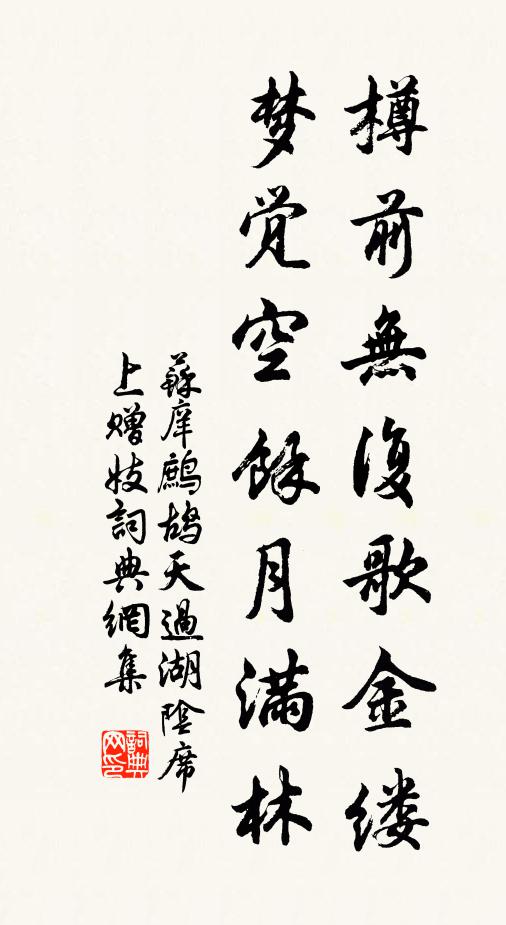 樽前無復歌金缕
梦觉空餘月满林
蘇庠鷓鴣天過湖陰席
上赠妓詞典網集
詞典
网印